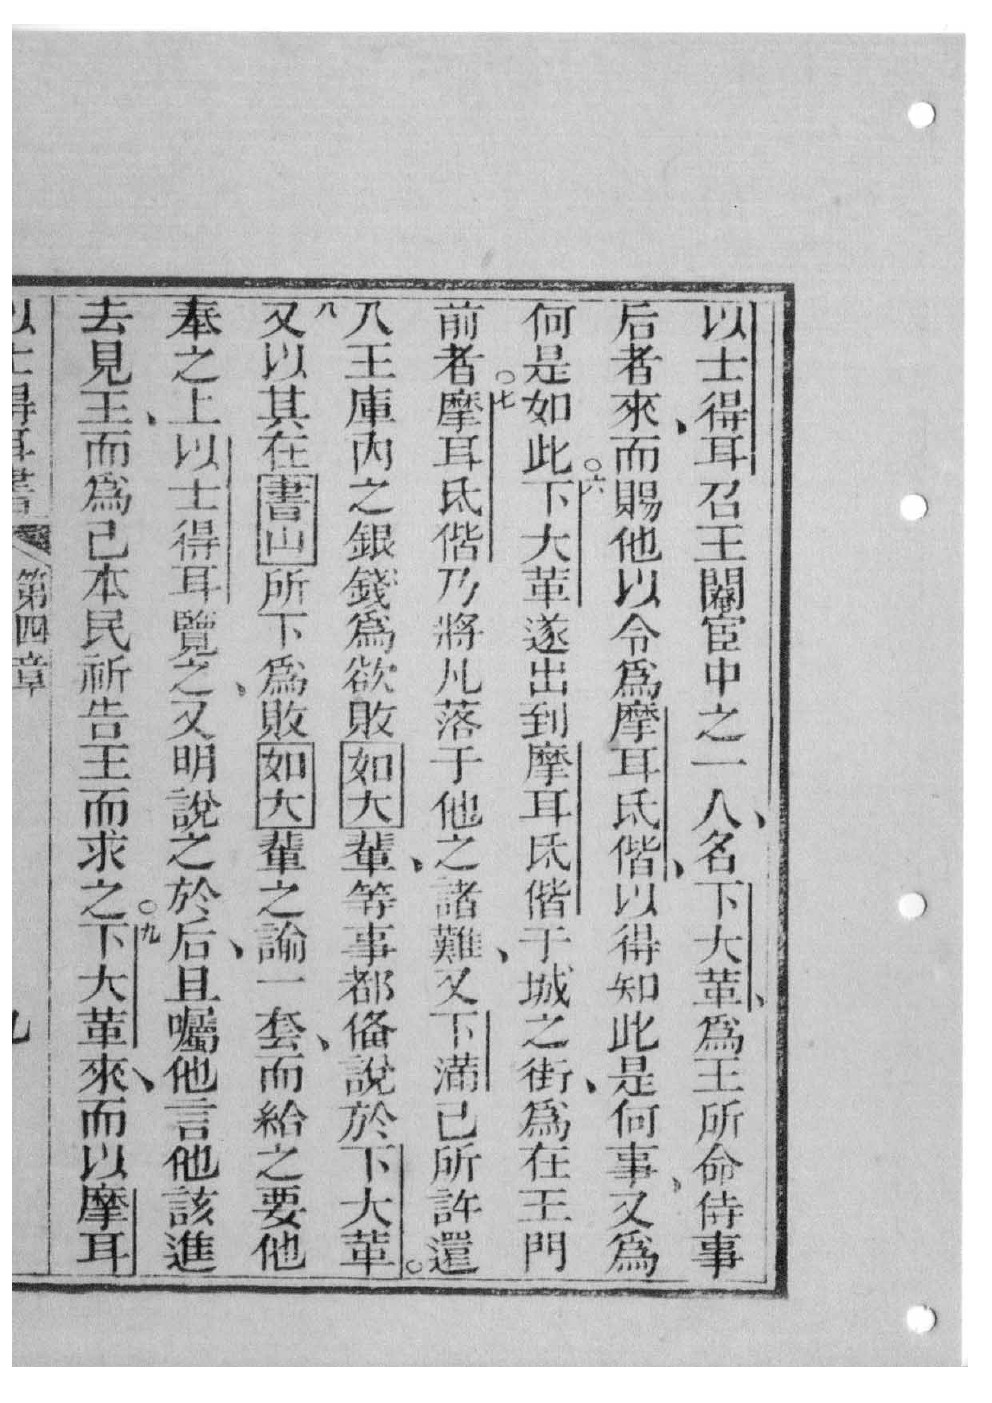 以士得耳召王閹宦中之一人名下大革、爲王所命侍事
后者來、而賜他以令爲摩耳氐偕、以得知此是何事、又爲
何是如此○六下大革遂出到摩耳氐偕于城之街、爲在王門
前者○七摩耳氐偕乃將凡落于他之諸難、又下滿己所許還
入王庫內之銀錢爲欲敗如大輩、等事都俻說於下大革○
八又以其在書山所下爲敗如大輩之諭一套、而給之要他
奉之上以士得耳覽之、又明說之於后、且囑他言他該進
去見王、而爲己本民祈告王而求之○九下大革來、而以摩耳
以士得耳書 第四章 九